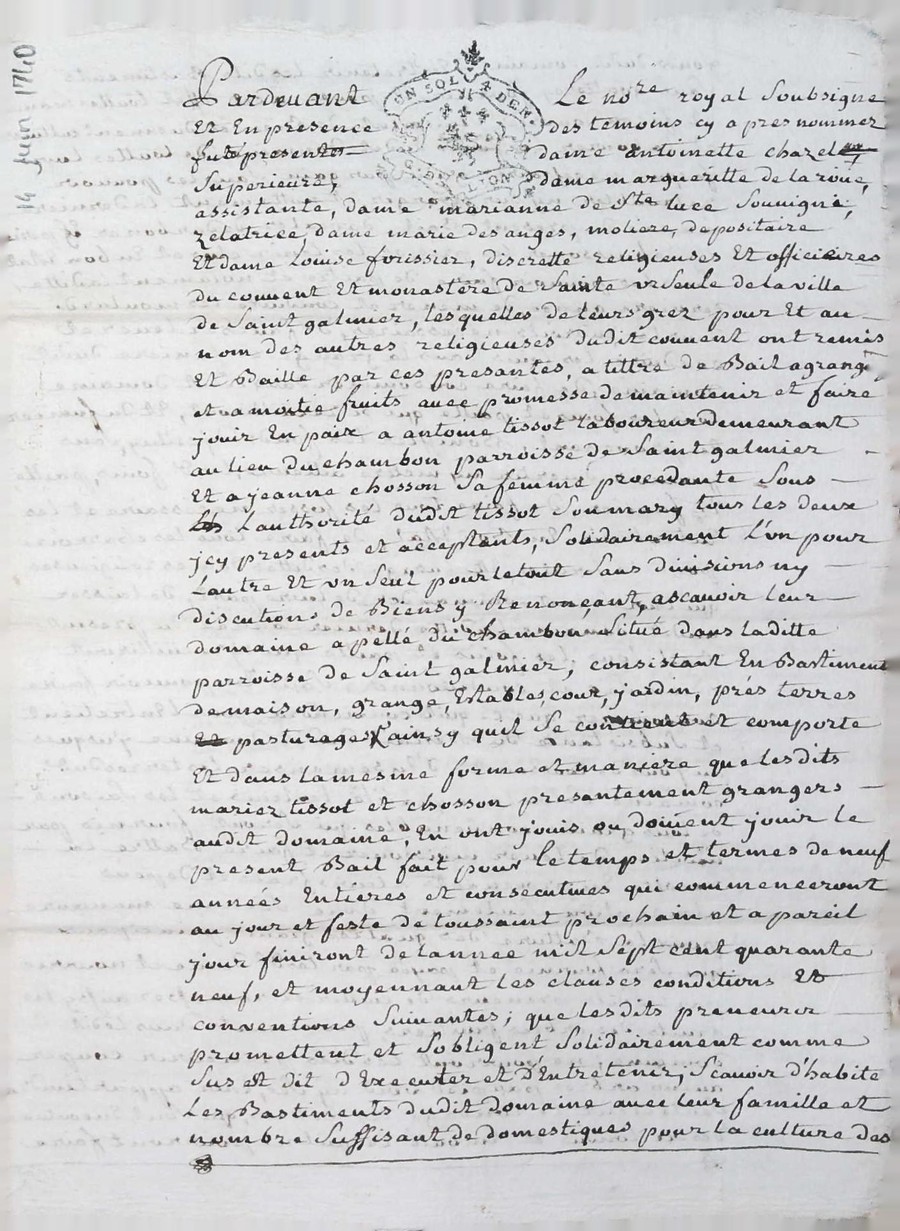 14 Juin 1740
UN SOL 4 DEN.
LION
Pardevant Le nore royal Soubsigne
Et En presence des temoins cy apres nommez
fute presentes dame antoinette chazel
Superieure, dame margueritte de la roüe,
assistante, dame marianne de Ste luce Souvigné,
zelatrice, dame marie des anges, moliere, depositaire
Et dame Louise forissier, discrette religieuses Et officieres
du couuent Et monastere de Sainte Urseule de la ville
de Saint galmier, lesquelles de leurs grez pour Et au
nom des autres religieuses dudit couuent ont remis
Et Baille par ces presantes, a tittre de Bail a grange
et a moitie fruits auec promesse de maintenir et faire
jouir En paix a antoine tissot laboureur demeurant
au lieu du chambon parroisse de Saint galmier
Et a jeanne chosson Sa femme procedante Sous
L'authorité dudit tissot Son mary tous les deux
jcy presents et acceptants, Solidairement L'un pour
L'autre Et un Seul pour le tout Sans diuisions ny
discution de Biens y Renonçant, ascauoir leur
domaine apellé du chambon Situé dans laditte
parroisse de Saint galmier, consistant En Bastiment
de maison, grange, Estables, cour, jardin, prés terres
Et pasturages ainsy quil Se contient et comporte
Et dans la mesme forme et maniere que lesdits
mariez tissot et chosson presantement grangers
audit domaine, En ont jouis ou doiuent jouir le
present Bail fait pour le temps et termes de neuf
années Entieres et consecutiues qui commenceront
au jour et feste de toussaint prochain et a pareil
jour finiront de lannee mil Sept cent quarante
neuf, et moyennant les clauses conditions Et
conventions Suiuantes; que lesdits preneurs
promettent et Sobligent Solidairement comme
Sus est dit d'Executer et d'Entretenir, Scauoir d'habite
Les Bastiments dudit domaine auec leur famille et
nombre Suffisant de domestiques pour la culture des